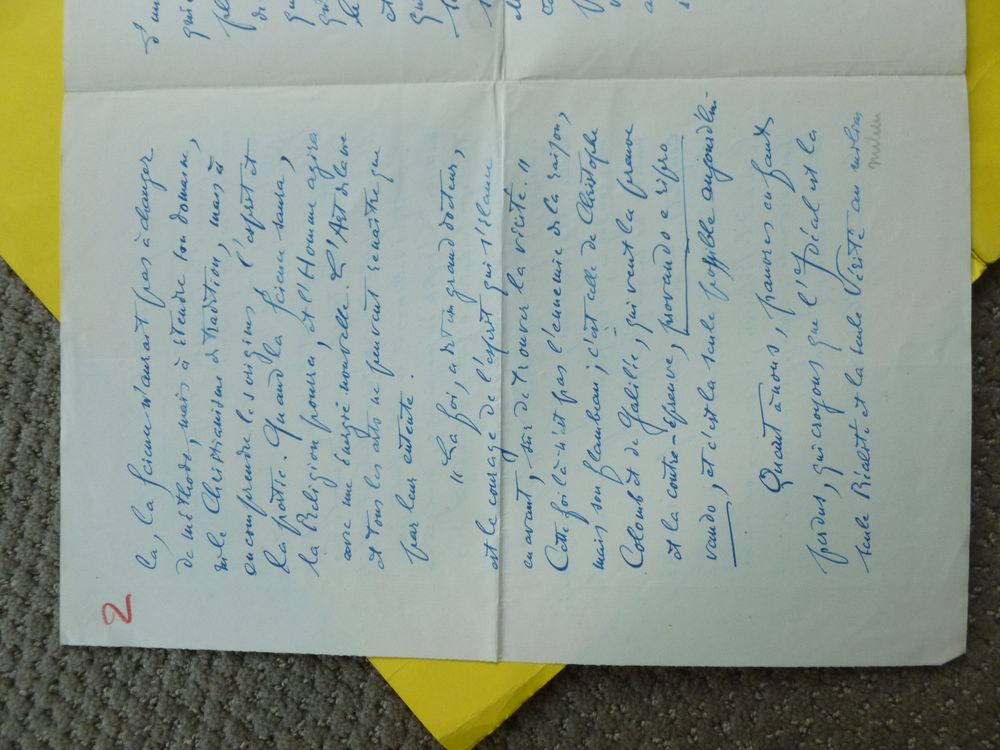 2
la, la science n'aurait pas à changer
de méthode, mais à étendre son domaine,
ni le Christianisme de tradition, mais à
en comprendre les origines, l'esprit et
la portée. Quand la science saura,
la Religion pourra, et l'Homme agira
avec une énergie nouvelle. L'Art de la vie
et tous les arts ne peuvent renaître que
par leur entente.
"La foi, a dit un grand docteur,
est le courage de l'esprit qui s'élance
en avant, sûr de trouver la vérité."
Cette foi-là n'est pas l'ennemie de la raison,
mais son flambeau; c'est celle de Christophe
Colomb et de Galilée, qui veut la preuve
et la contre-épreuve, provando e ripro
vando, et c'est la seule possible aujourd'hui.
Quant à nous, pauvres enfants
perdus, qui croyons que l'Idéal est la
seule Réalité et la seule Vérité au milieu
milieu